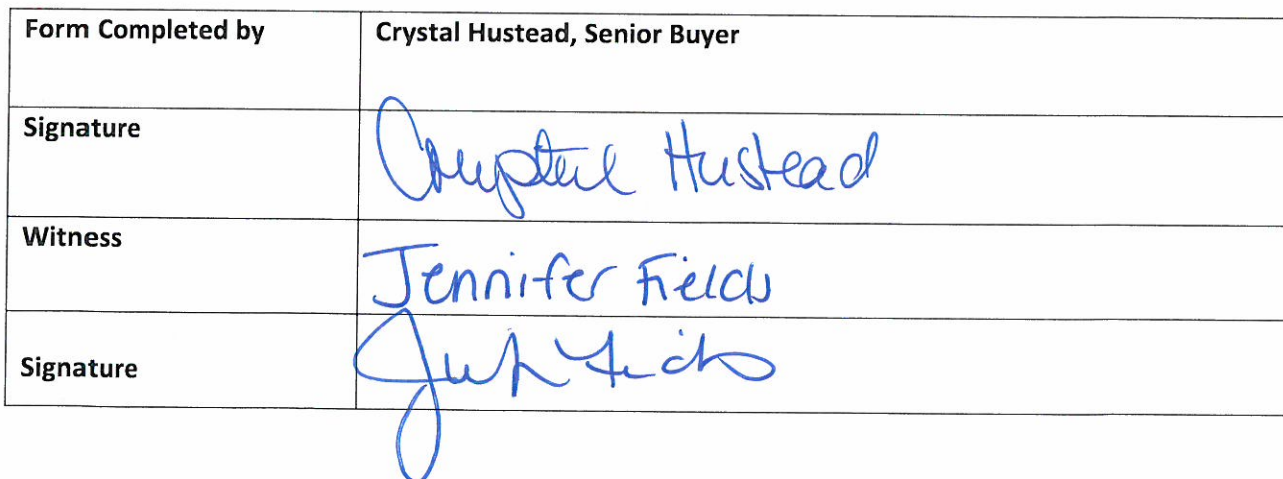 Form Completed by
Crystal Hustead, Senior Buyer
Signature
Crystal Hustead
Witness
Jennifer Fields
Signature